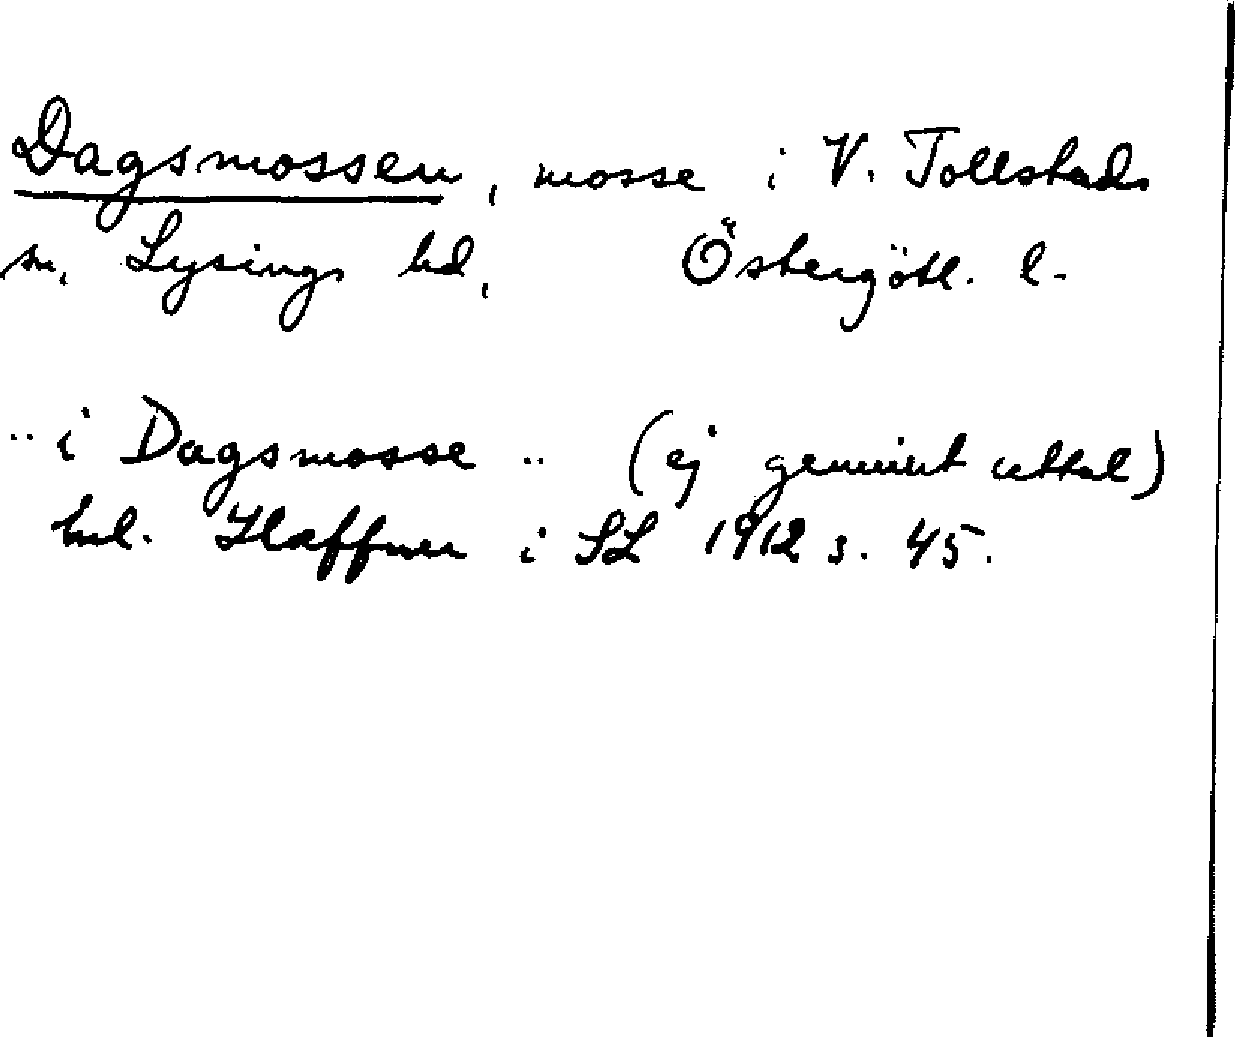 Dagsmossen, mosse i V. Tollstads
sn, Lysings hd, Östergötl. l.
.. i Dagsmosse .. (ej genuint uttal)
enl. Haffner i SL 1912 s. 45.